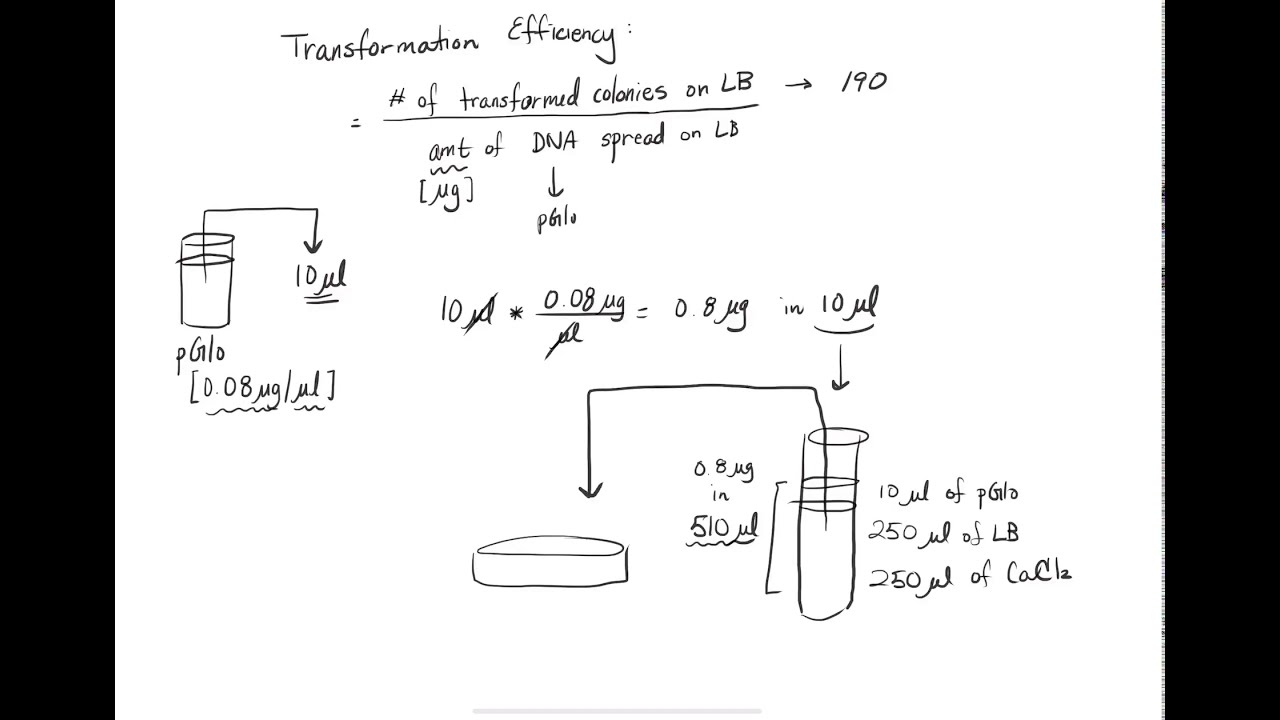 Transformation Efficiency:
= # of transformed colonies on LB → 190
amt of DNA spread on LB
[µg] ↓
pGlo
10 µl
pGlo
[0.08 µg/µl]
10 µl * 0.08 µg = 0.8 µg in 10 µl
µl
0.8 µg
in
510 µl
10 µl of pGlo
250 µl of LB
250 µl of CaCl2